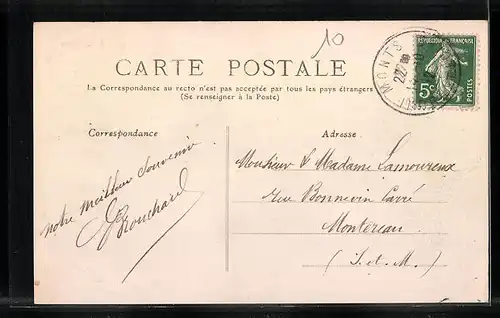 10
CARTE POSTALE
La Correspondance au recto n'est pas acceptée par tous les pays étrangers
(Se renseigner à la Poste)
MONTS
22
REPUBLIQUE FRANÇAISE
5c
POSTES
Correspondance
notre meilleur souvenir
Adresse
Monsieur & Madame Lamoureux
rue Bonnevin Carré
Montereau
(S. et. M.)